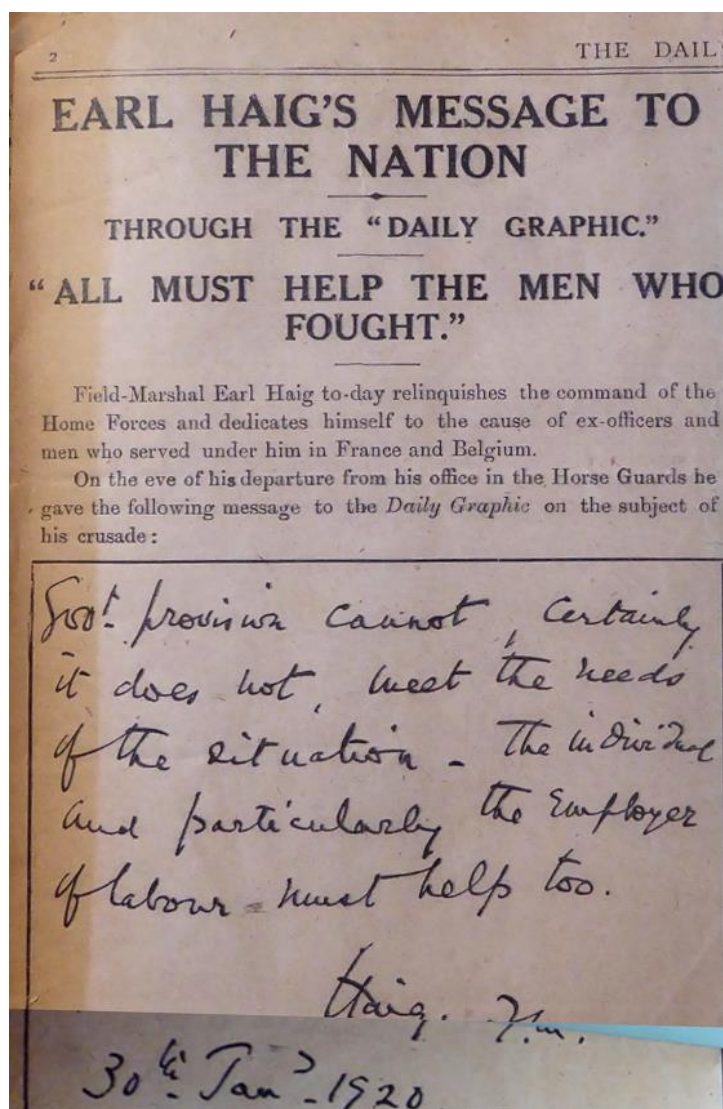 2
THE DAIL
EARL HAIG'S MESSAGE TO
THE NATION
THROUGH THE "DAILY GRAPHIC."
"ALL MUST HELP THE MEN WHO
FOUGHT."
Field-Marshal Earl Haig to-day relinquishes the command of the
Home Forces and dedicates himself to the cause of ex-officers and
men who served under him in France and Belgium.
On the eve of his departure from his office in the Horse Guards he
gave the following message to the Daily Graphic on the subject of
his crusade:
Govt. provision cannot, certainly
it does not, meet the needs
of the situation - The individual
and particularly the Employer
of labour must help too.
Haig. F.M.
30th Jany. 1920